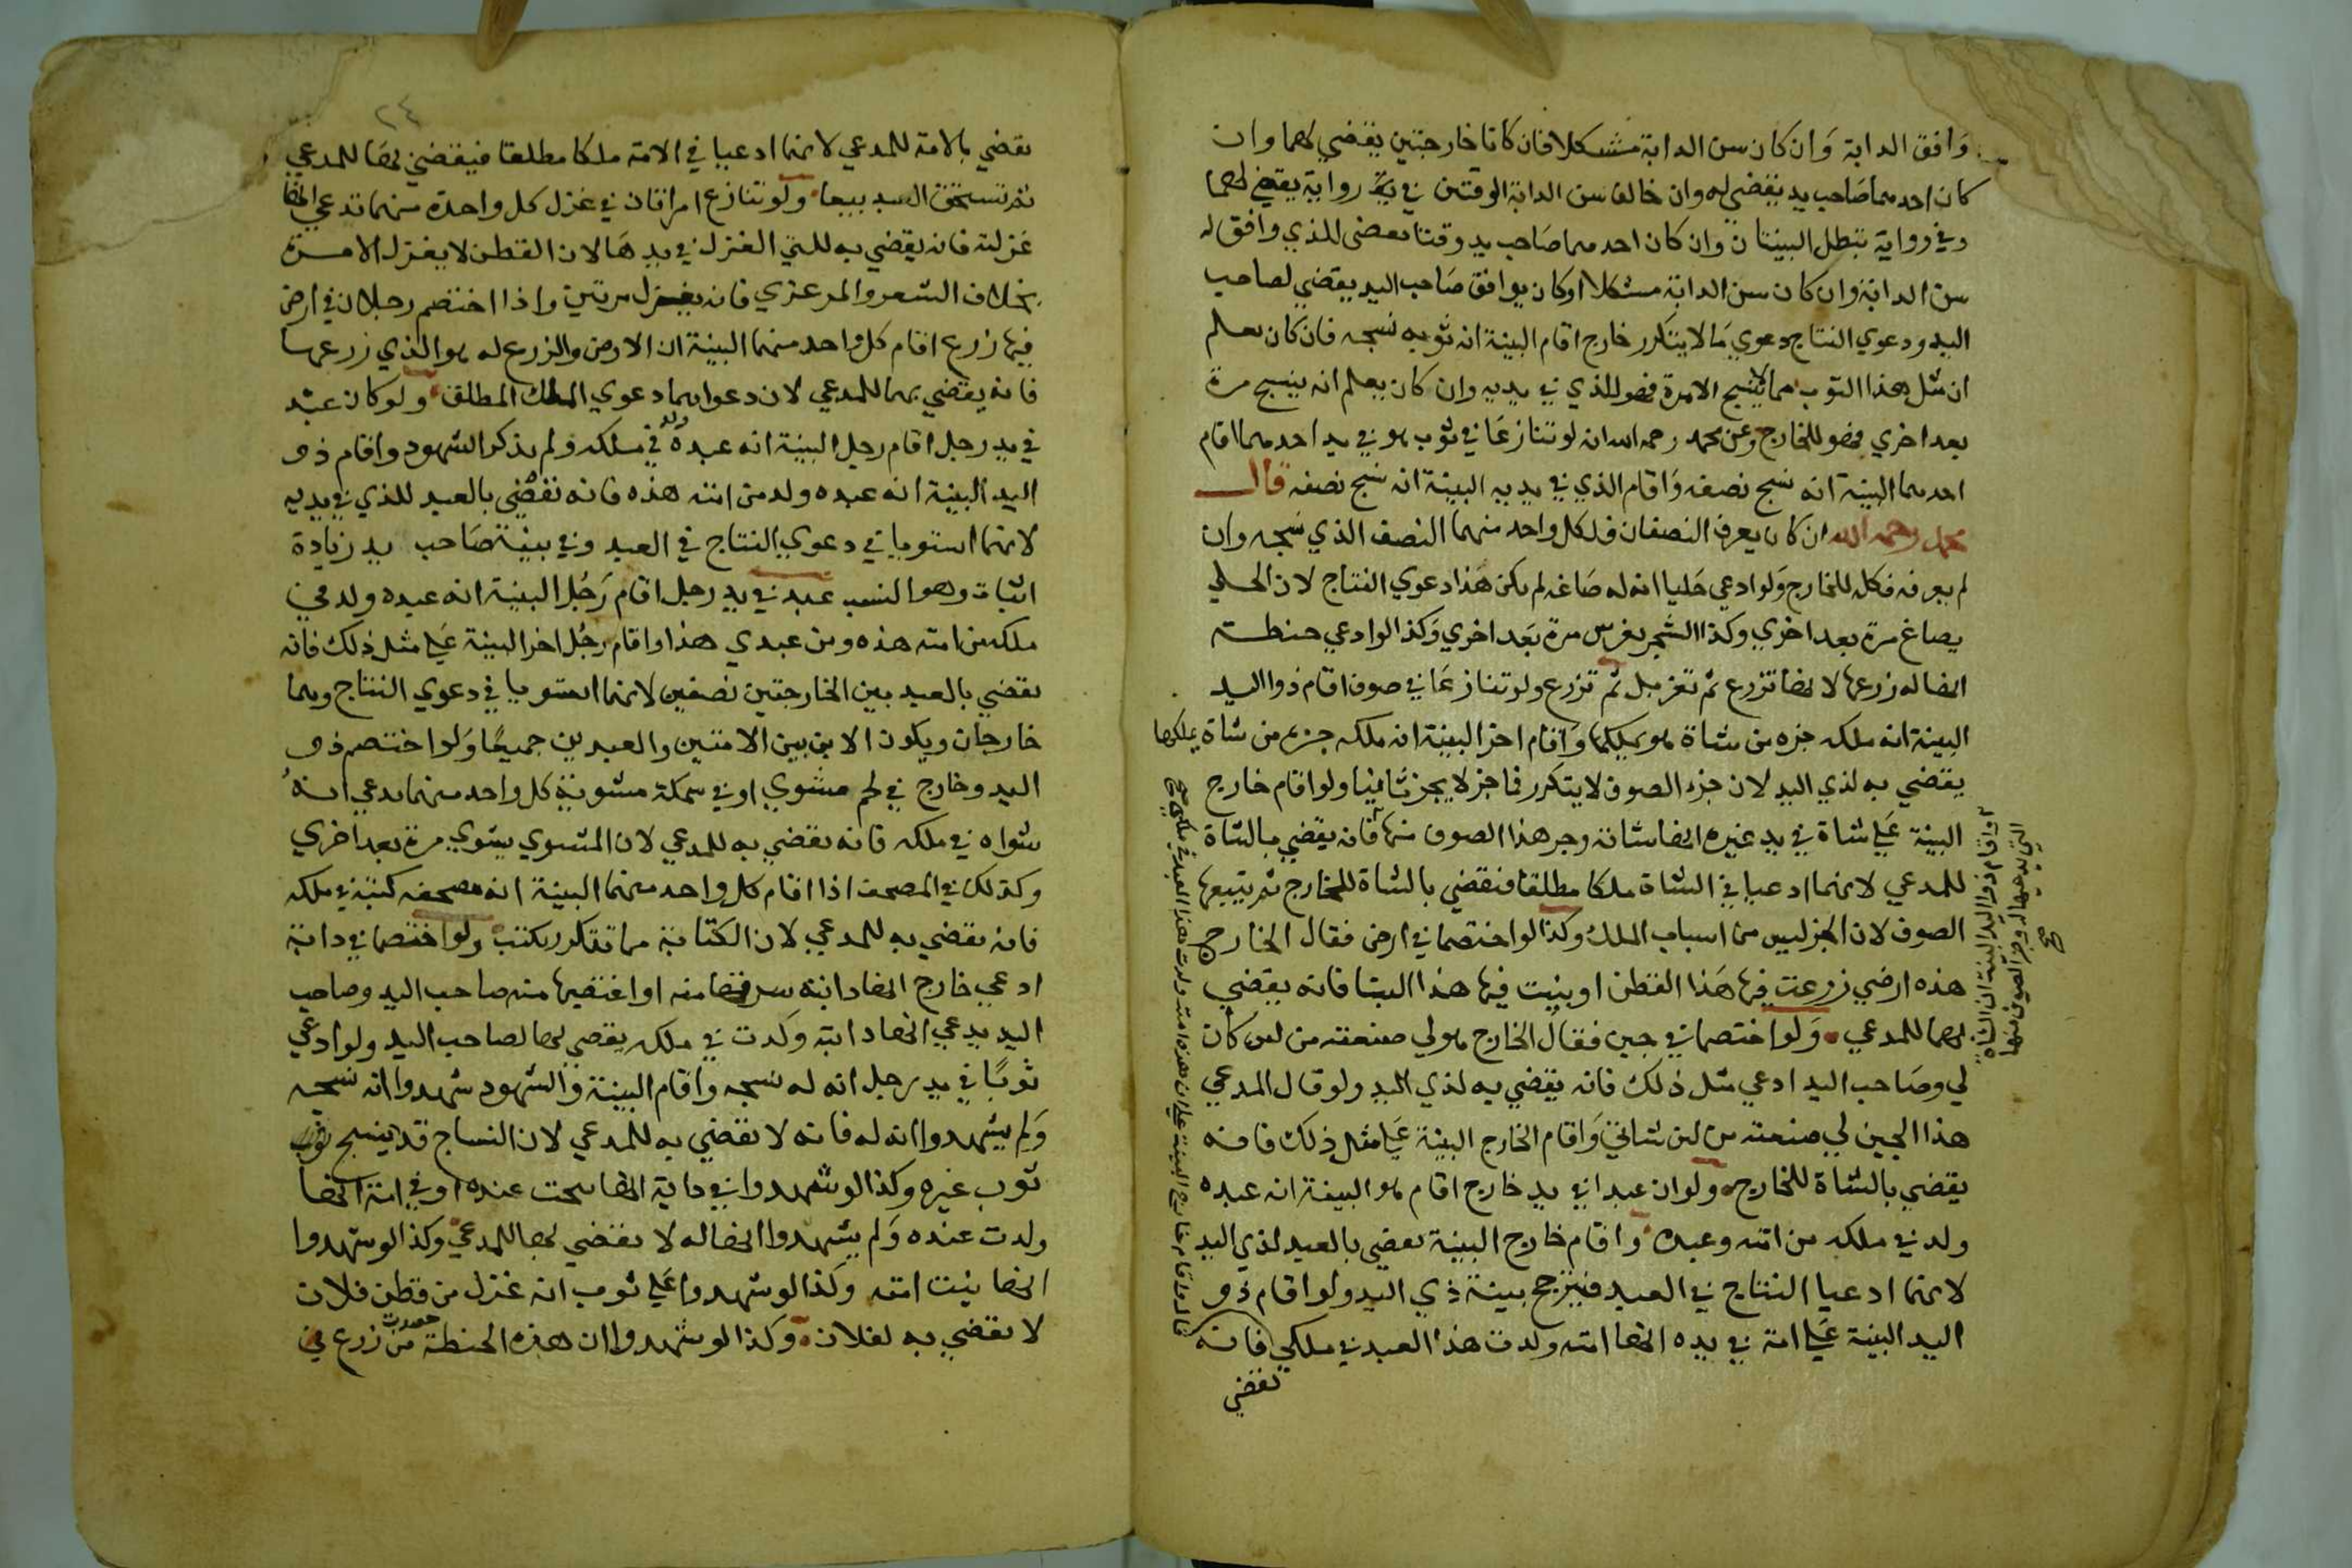 وافق الدابة وان كان سن الدابة مشكلا فان كانا خارجين يقضي لهما وان
كان احدهما صاحب يد يقضي له وان خالف سن الدابة الوقتين في رواية يقضي لهما
وفي رواية تبطل البينتان وان كان احدهما صاحب يد وقتا يقضى للذي وافق له
سن الدابة وان كان سن الدابة مشكلا او كان يوافق صاحب اليد يقضي لصاحب
اليد ودعوي النتاج دعوي ما لا يتكرر خارج اقام البينة انه ثوبه نسجه فان كان يعلم
ان مثل هذا الثوب مما لا ينسج الا مرة فهو للذي في يديه وان كان يعلم انه ينسج مرة
بعد اخري فهو للخارج وعن محمد رحمه الله ان لو تنازعا في ثوب هو في يد احدهما اقام
احدهما البينة انه نسج نصفه واقام الذي في يديه البينة انه نسج نصفه قال
محمد رحمه الله ان كان يعرف النصفان فلكل واحد منهما النصف الذي نسجه وان
لم يعرف فكله للخارج ولو ادعي حليا انه له صاغه لم يكن هذا دعوي النتاج لان الحلي
يصاغ مرة بعد اخري وكذا الشجر يغرس مرة بعد اخري وكذا لو ادعي حنطة
انها له زرعها لانها تزرع ثم تغربل ثم تزرع ولو تنازعا في صوف اقام ذوا اليد
البينة انه ملكه جزه من شاة هو يملكها واقام اخر البينة انه ملكه جزه من شاة يملكها
يقضي به لذي اليد لان جزه الصوف لا يتكرر فما جز لا يجز ثانيا ولو اقام خارج
البينة علي شاة في يد غيره انها شاته وجز هذا الصوف منها فانه يقضي بالشاة
للمدعي لانهما ادعيا في الشاة ملكا مطلقا فنقضي بالشاة للخارج ثم يتبعها
الصوف لان الجز ليس من اسباب الملك وكذا لو اختصما في ارض فقال الخارج
هذه ارضي زرعت فيها هذا القطن او بنيت فيها هذا البنا فانه يقضي
لهما للمدعي ولو اختصما في جبن فقال الخارج هو لي صنعته من لبن كان
لي وصاحب اليد ادعي مثل ذلك فانه يقضي به لذي اليد ولو قال المدعي
هذا الجبن لي صنعته من لبن شاتي واقام الخارج البينة علي مثل ذلك فانه
يقضي بالشاة للخارج ولو ان عبدا في يد خارج اقام هو البينة انه عبده
ولد في ملكه من امته وعبده واقام خارج البينة يقضي بالعبد لذي اليد
لانهما ادعيا النتاج في العبد فيترجح بينة ذي اليد ولو اقام ذو
اليد البينة علي امة في يده انها امته ولدت هذا العبد في ملكي فانه
نقضي
واقام ذو اليد البينة ان الشاة
التي يدعيها له وجز الصوف منها
صح
٢٤
نقضي بالامة للمدعي لانهما ادعيا في الامة ملكا مطلقا فيقضي بها للمدعي
ثم تستحق العبد تبعا ولو تنازع امراتان في غزل كل واحدة منهما تدعي انها
غزلته فانه يقضي به للتي الغزل في يدها لان القطن لا يغزل الا مرة
بخلاف الشعر والمرعزي فانه يغزل مرتين واذا اختصم رجلان في ارض
فيها زرع اقام كل واحد منهما البينة ان الارض والزرع له هو الذي زرعها
فانه يقضي بهما للمدعي لان دعواهما دعوي الملك المطلق ولو كان عبد
في يد رجل اقام رجل البينة انه عبده ولد في ملكه ولم يذكر الشهود واقام ذو
اليد البينة انه عبده ولد من امته هذه فانه نقضي بالعبد للذي في يديه
لانهما استويا في دعوي النتاج في العبد وفي بينة صاحب يد زيادة
اثبات وهو النسب عبد في يد رجل اقام رجل البينة انه عبده ولد في
ملكه من امته هذه ومن عبدي هذا واقام رجل اخر البينة علي مثل ذلك فانه
نقضي بالعبد بين الخارجين نصفين لانهما استويا في دعوي النتاج وهما
خارجان ويكون الابن بين الامتين والعبدين جميعا ولو اختصم ذو
اليد وخارج في لحم مشوي او في سمكة مشوية كل واحد منهما يدعي انه
شواه في ملكه فانه نقضي به للمدعي لان المشوي يشوي مرة بعد اخري
وكذلك في المصحف اذا اقام كل واحد منهما البينة انه مصحفه كتبه في ملكه
فانه نقضي به للمدعي لان الكتابة مما تتكرر يكتب ولو اختصما في دابة
ادعي خارج انها دابته سرقها منه او اغتصبها منه صاحب اليد وصاحب
اليد يدعي انها دابته ولدت في ملكه يقضي بها لصاحب اليد ولو ادعي
ثوبا في يد رجل انه له نسجه واقام البينة والشهود شهدوا انه نسجه
ولم يشهدوا انه له فانه لا نقضي به للمدعي لان النساج قد ينسج
ثوب غيره وكذا لو شهدوا في دابة انها نتجت عنده او في امة انها
ولدت عنده ولم يشهدوا انها له لا نقضي بها للمدعي وكذا لو شهدوا
انها بنت امته وكذا لو شهدوا علي ثوب انه غزل من قطن فلان
لا نقضي به لفلان وكذا لو شهدوا ان هذه الحنطة حصدت من زرع في